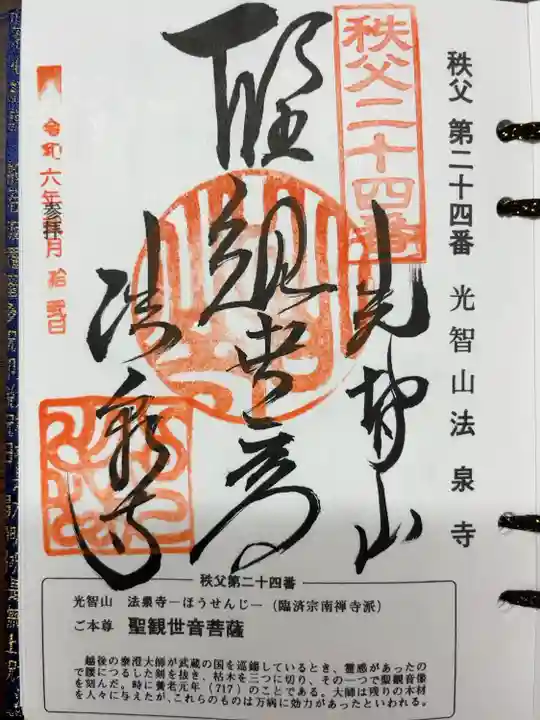 秩父 第二十四番 光智山法泉寺
秩父二十四番
光智山
聖観世音
法泉寺
令和六年 月拾弐日
参拝
秩父第二十四番
光智山 法泉寺―ほうせんじ―(臨済宗南禅寺派)
ご本尊 聖観世音菩薩
越後の泰澄大師が武蔵の国を巡錫しているとき、霊感があったの
で腰につるした剣を抜き、枯木を三つに切り、その一つで聖観音像
を刻んだ。時に養老元年(717)のことである。大師は残りの木材
を人々に与えたが、これらのものは万病に効力があったといわれる。